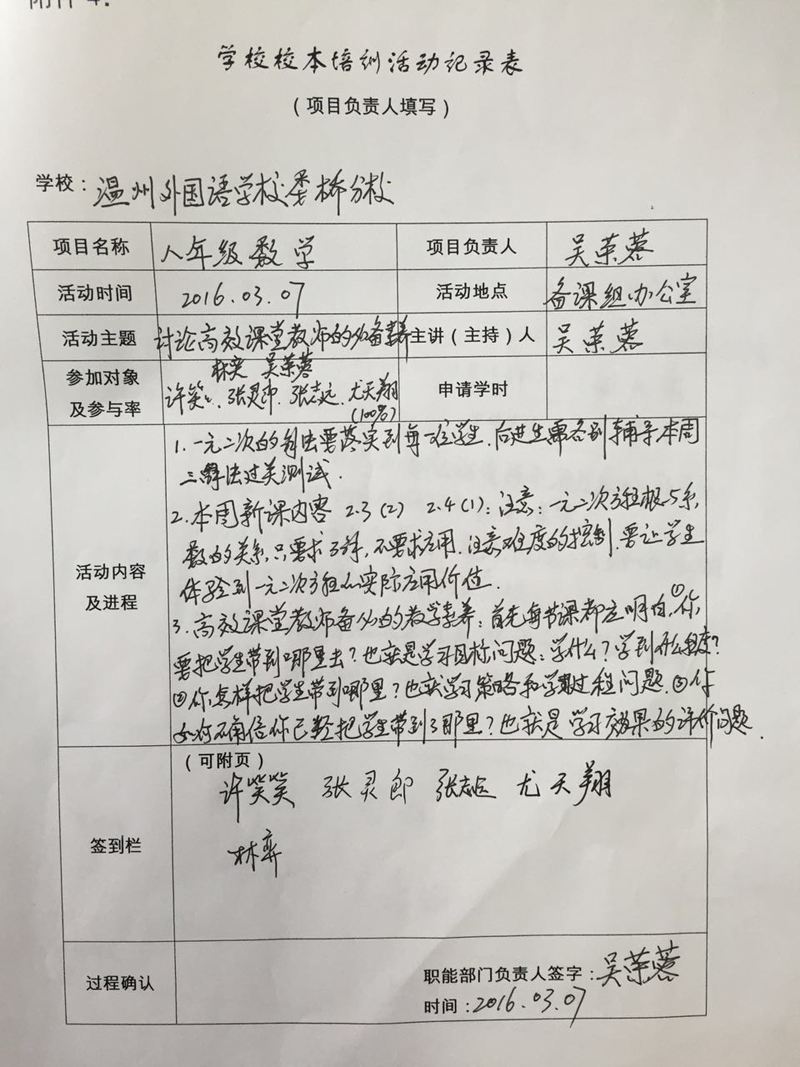 附件4:
学校校本培训活动记录表
(项目负责人填写)
学校: 温州外国语学校娄桥分校
项目名称 八年级数学 项目负责人 吴荣蓉
活动时间 2016.03.07 活动地点 备课组办公室
活动主题 讨论高效课堂教师的必备素养 主讲(主持)人 吴荣蓉
林奕 吴荣蓉
参加对象 许笑笑、张灵郎、张志远、尤天翔
及参与率 (100%) 申请学时
1.一元二次的解法要落实到每一位学生.后进生需个别辅导本周
三解法过关测试.
2.本周新课内容 2.3(2) 2.4(1):注意:一元二次方程根与系
数的关系,只要求了解,不要求应用.注意难度的控制.要让学生
活动内容 体验到一元二次方程的实际应用价值.
及进程 3.高效课堂教师备必的教学素养:首先每节课都应明白,①你
要把学生带到哪里去?也就是学习目标问题:学什么?学到什么程度?
②你怎样把学生带到哪里?也就学习策略和学习过程问题.③你
如何确信你已经把学生带到了那里?也就是学习效果的评价问题.
(可附页)
许笑笑 张灵郎 张志远 尤天翔
签到栏 林奕
过程确认 职能部门负责人签字: 吴荣蓉
时间: 2016.03.07